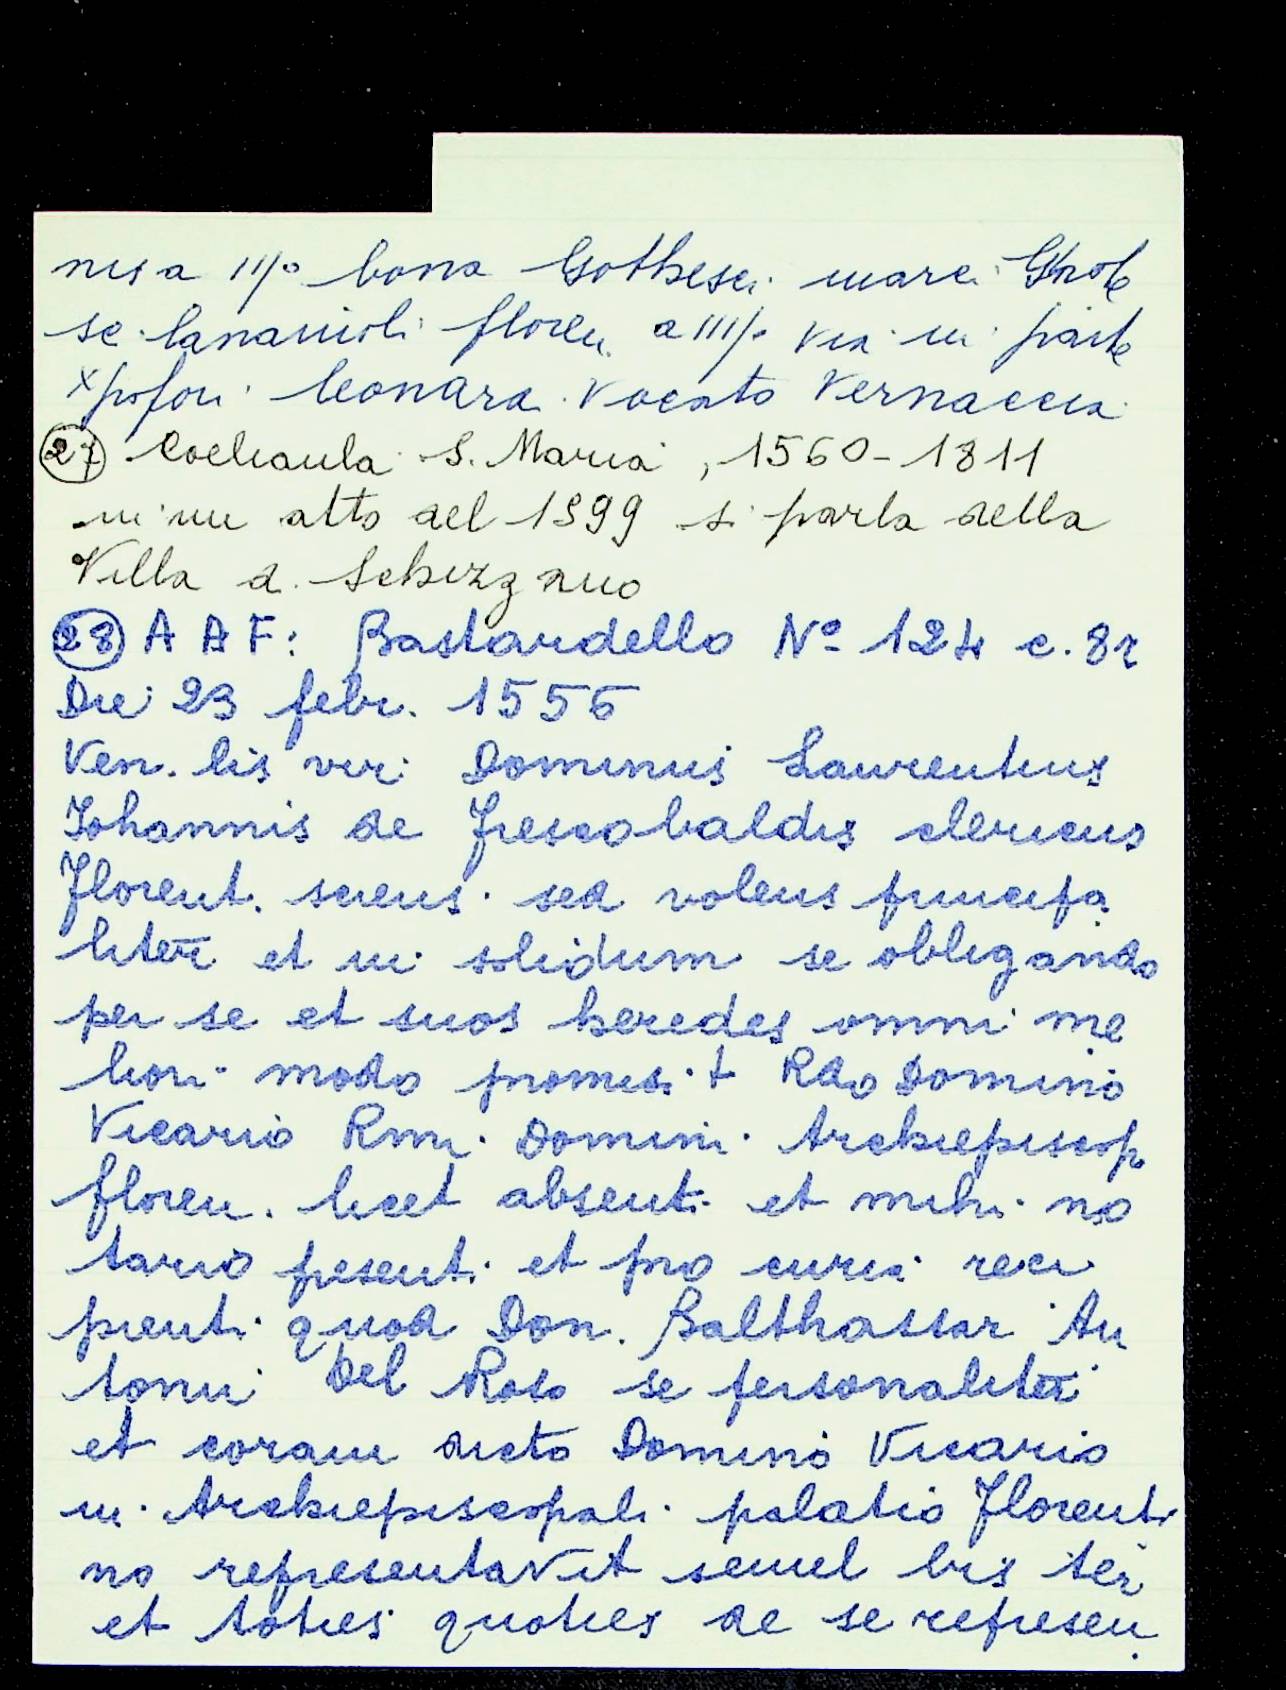 nis a 11/º bona Gottesci marci Ghob
se lanaiuoli floren. a 111/º via in parte
Xpofori leonara Vocato Vernaccia
27 Cochiaula S. Maria, 1560-1811
in un atto del 1599 si parla della
Villa di Schizzano
28 A A F: Bastardello Nº 124 c. 8r
Die 23 febr. 1556
Ven. lis viri Dominus Laurentius
Iohannis de frescobaldis clericus
Florent. sciens sed volens principa
liter et in solidum se obligando
per se et suos heredes omni me
liori modo promisit Rdo Domino
Vicario Rmi Domini Archiepiscop
floren. licet absenti et mihi no
tario presenti et pro curia reci
pienti quod Don. Balthassar An
tonii Del Roso se personaliter
et coram dicto Domino Vicario
in Archiepiscopali palatio Florenti
no representavit semel bis ter
et toties quoties de se represen